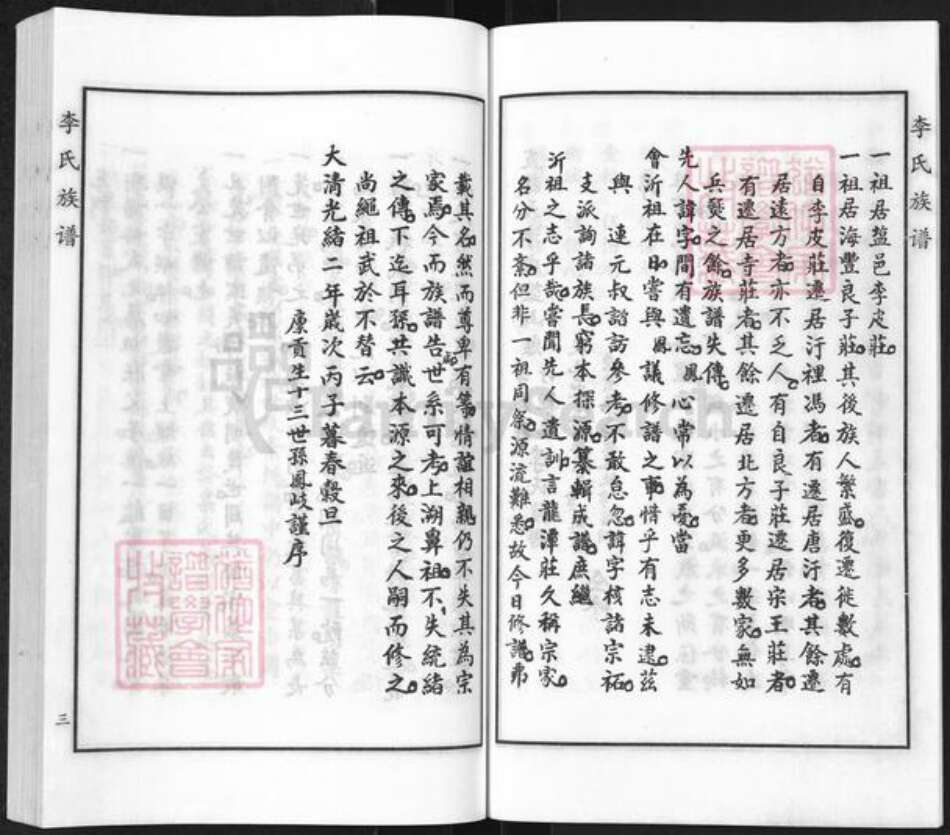 李氏族譜
一祖居鹽邑李皮莊
一祖居海豐良子莊其後族人繁盛復遷徙數處有
自李皮莊遷居汙裡馮者有遷居唐汙者其餘遷
居遠方者亦不乏人有自良子莊遷居宗王莊者
有遷居寺莊者其餘遷居北方者更多數家無如
兵燹之餘族譜失傳
先人諱字間有遺忘鳳心常以為憂當
會沂祖在日嘗與鳳議修譜之事惜乎有志未逮茲
與連元叔諮訪參考不敢怠忽諱字核諸宗祏
支派詢諸族長窮本探源纂輯成譜庶繼
沂祖之志乎哉嘗聞先人遺訓言龍潭莊久稱宗家
名分不紊但非一祖同祭源流難悉故今日修譜弗
載其名然而尊卑有等情誼相親仍不失其為宗
家焉今而族譜告世系可考上溯鼻祖不失統緒
之傳下迄耳孫共識本源之來後之人嗣而修之
尚繩祖武於不替云
大清光緒二年歲次丙子暮春穀旦
廩貢生十三世孫鳳歧謹序
李氏族譜
三
FamilySearch